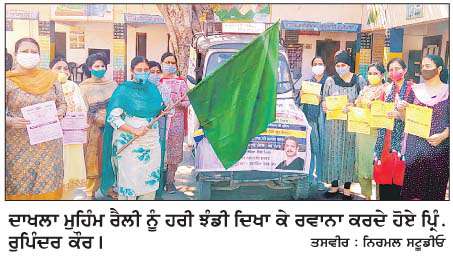 ਦਾਖਲਾ ਮੁਹਿੰਮ ਰੈਲੀ ਨੂੰ ਹਰੀ ਝੰਡੀ ਦਿਖਾ ਕੇ ਰਵਾਨਾ ਕਰਦੇ ਹੋਏ ਪ੍ਰਿੰ.
ਰੁਪਿੰਦਰ ਕੌਰ। ਤਸਵੀਰ : ਨਿਰਮਲ ਸਟੂਡੀਓ